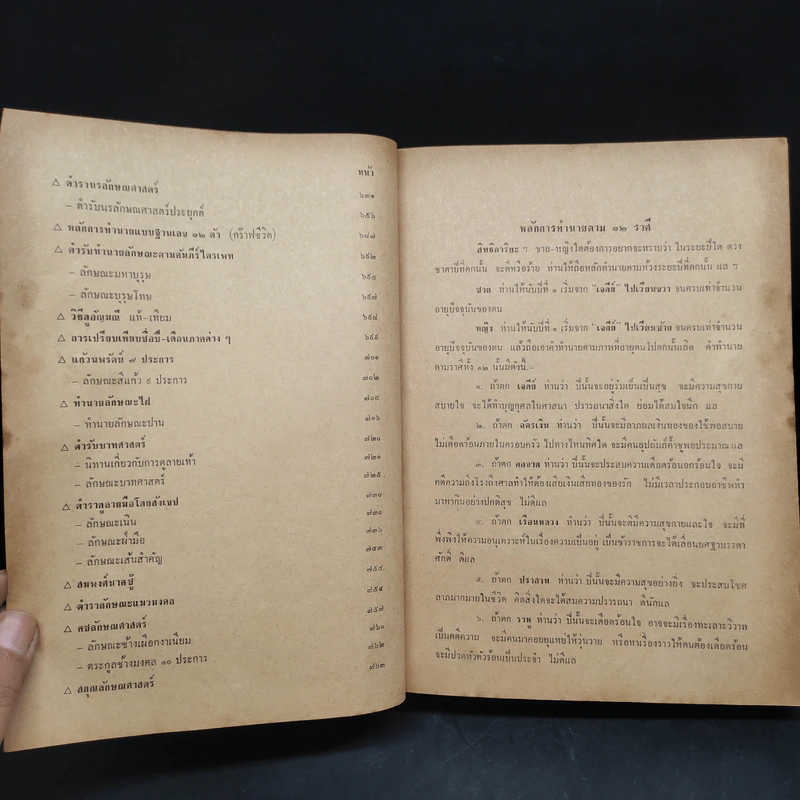 หน้า
△ ตำรานรลักษณศาสตร์ ๖๓๑
– ตำรับนรลักษณศาสตร์ประยุกต์ ๖๕๖
△ หลักการทำนายแบบฐานเลข ๑๒ ตัว (กร๊าฟชีวิต) ๖๘๗
△ ตำรับทำนายลักษณะตามคัมภีร์ไตรเพท ๖๙๒
– ลักษณะมหาบุรุษ ๖๙๔
– ลักษณะบุรุษโทษ ๖๙๗
△ วิธีดูอัญมณี แท้–เทียม ๖๙๘
△ การเปรียบเทียบชื่อปี–เดือนภาคต่าง ๆ ๖๙๙
△ แก้วนพรัตน์ ๙ ประการ ๗๐๑
– ลักษณะสีแก้ว ๙ ประการ ๗๐๒
△ ทำนายลักษณะไฝ ๗๐๔
– ทำนายลักษณะปาน ๗๑๖
△ ตำรับบาทศาสตร์ ๗๒๐
– นิทานเกี่ยวกับการดูลายเท้า ๗๒๑
– ลักษณะบาทศาสตร์ ๗๒๕
△ ตำราดูลายมือโดยสังเขป ๗๓๐
– ลักษณะเนิน ๗๓๐
– ลักษณะฝ่ามือ ๗๓๖
– ลักษณะเส้นสำคัญ ๗๔๓
△ สมพงศ์นาคชู้ ๗๕๔
△ ตำราลักษณะแมวมงคล ๗๕๕
△ คชลักษณศาสตร์ ๗๕๗
– ลักษณะช้างเผือกงาเนียม ๗๖๐
– ตระกูลช้างมงคล ๑๐ ประการ ๗๖๒
△ สกุณลักษณศาสตร์ ๗๖๓
หลักการทำนายตาม ๑๒ ราศี
สิทธิการิยะ ฯ ชาย–หญิงใดต้องการอยากจะทราบว่า ในระยะปีใด ดวง
ชาตาปีที่ตกนั้น จะดีหรือร้าย ท่านให้ถือหลักทำนายตามห้วงระยะปีที่ตกนั้น แล ฯ
ชาย ท่านให้นับปีที่ ๑ เริ่มจาก "เจดีย์" ไปเวียนขวา จนครบเท่าจำนวน
อายุปัจจุบันของตน
หญิง ท่านให้นับปีที่ ๑ เริ่มจาก "เจดีย์" ไปเวียนซ้าย จนครบเท่าจำนวน
อายุปัจจุบันของตน แล้วถือเอาคำทำนายตามภาพที่อายุตนไปตกนั้นเถิด คำทำนาย
ตามราศีทั้ง ๑๒ นั้นมีดังนี้.–
๑. ถ้าตก เจดีย์ ท่านว่า ปีนั้นจะอยู่ร่มเย็นเป็นสุข จะมีความสุขกาย
สบายใจ จะได้ทำบุญกุศลในศาสนา ปรารถนาสิ่งใด ย่อมได้สมใจนึก แล
๒. ถ้าตก ฉัตรเงิน ท่านว่า ปีนั้นจะมีลาภผลเงินทองของใช้พอสบาย
ไม่เดือดร้อนภายในครอบครัว ไปทางไหนทิศใด จะมีคนอุปถัมภ์ค้ำชูพอประมาณ แล
๓. ถ้าตก คอขาด ท่านว่า ปีนั้นจะประสบความเดือดร้อนอกร้อนใจ จะมี
คดีความถึงโรงถึงศาลทำให้ต้องเสียเงินเสียทองของรัก ไม่มีเวลาประกอบอาชีพทำ
มาหากินอย่างปกติสุข ไม่ดีแล
๔. ถ้าตก เรือนหลวง ท่านว่า ปีนั้นจะดีมีความสุขกายและใจ จะมีที่
พึ่งพิงให้ความอนุเคราะห์ในเรื่องความเป็นอยู่ เป็นข้าราชการจะได้เลื่อนยศฐานรรดา
ศักดิ์ ดีแล
๕. ถ้าตก ปราสาท ท่านว่า ปีนั้นจะมีความสุขอย่างยิ่ง จะประสบโชค
ลาภมากมายในชีวิต คิดสิ่งใดจะได้สมความปรารถนา ดีนักแล
๖. ถ้าตก ราหู ท่านว่า ปีนั้นจะเดือดร้อนใจ อาจจะมีเรื่องทะเลาะวิวาท
เป็นคดีความ จะมีคนมาคอยยุแหย่ให้วุ่นวาย หรือหาเรื่องราวให้ตนต้องเดือดร้อน
จะมีปวดหัวตัวร้อนเป็นประจำ ไม่ดีแล